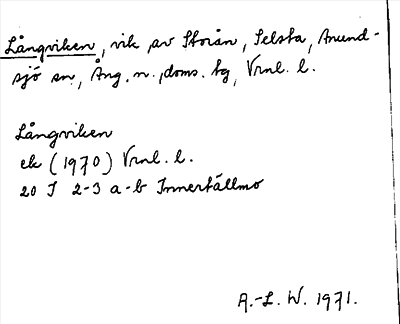 Långviken, vik av Storån, Selsta, Anund-
sjö sn, Ång. n., doms. tg, Vrnl. l.
Långviken
ek (1970) Vrnl. l.
20 I 2-3 a-b Innertällmo
A.-L. W. 1971.